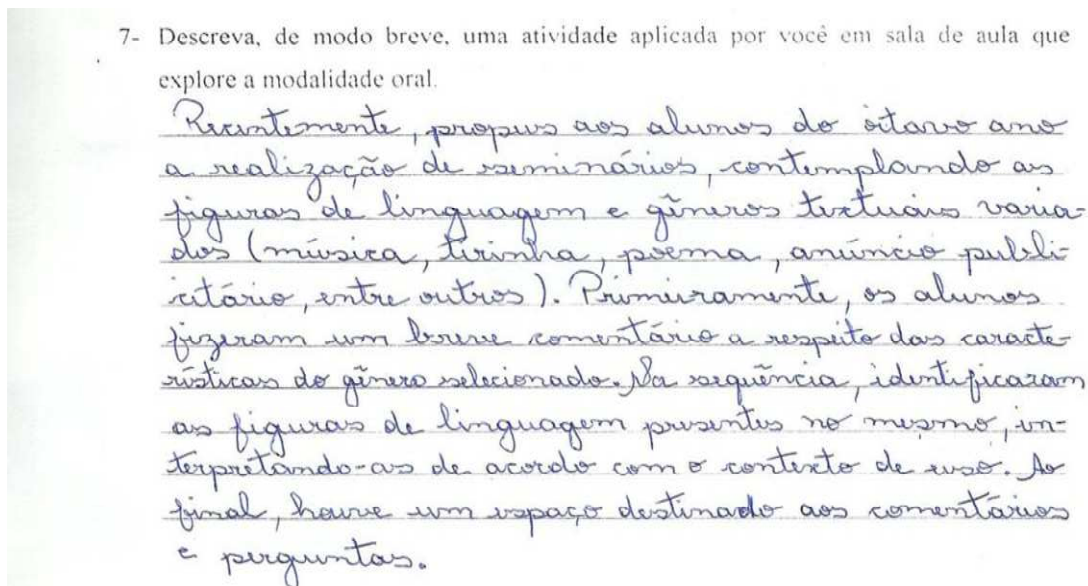 7- Descreva, de modo breve, uma atividade aplicada por você em sala de aula que
explore a modalidade oral.
Recentemente, propus aos alunos do oitavo ano
a realização de seminários, contemplando as
figuras de linguagem e gêneros textuais varia-
dos (música, tirinha, poema, anúncio publi-
citário, entre outros). Primeiramente, os alunos
fizeram um breve comentário a respeito das caracte-
rísticas do gênero selecionado. Na sequência, identificaram
as figuras de linguagem presentes no mesmo, in-
terpretando-as de acordo com o contexto de uso. Ao
final, houve um espaço destinado aos comentários
e perguntas.